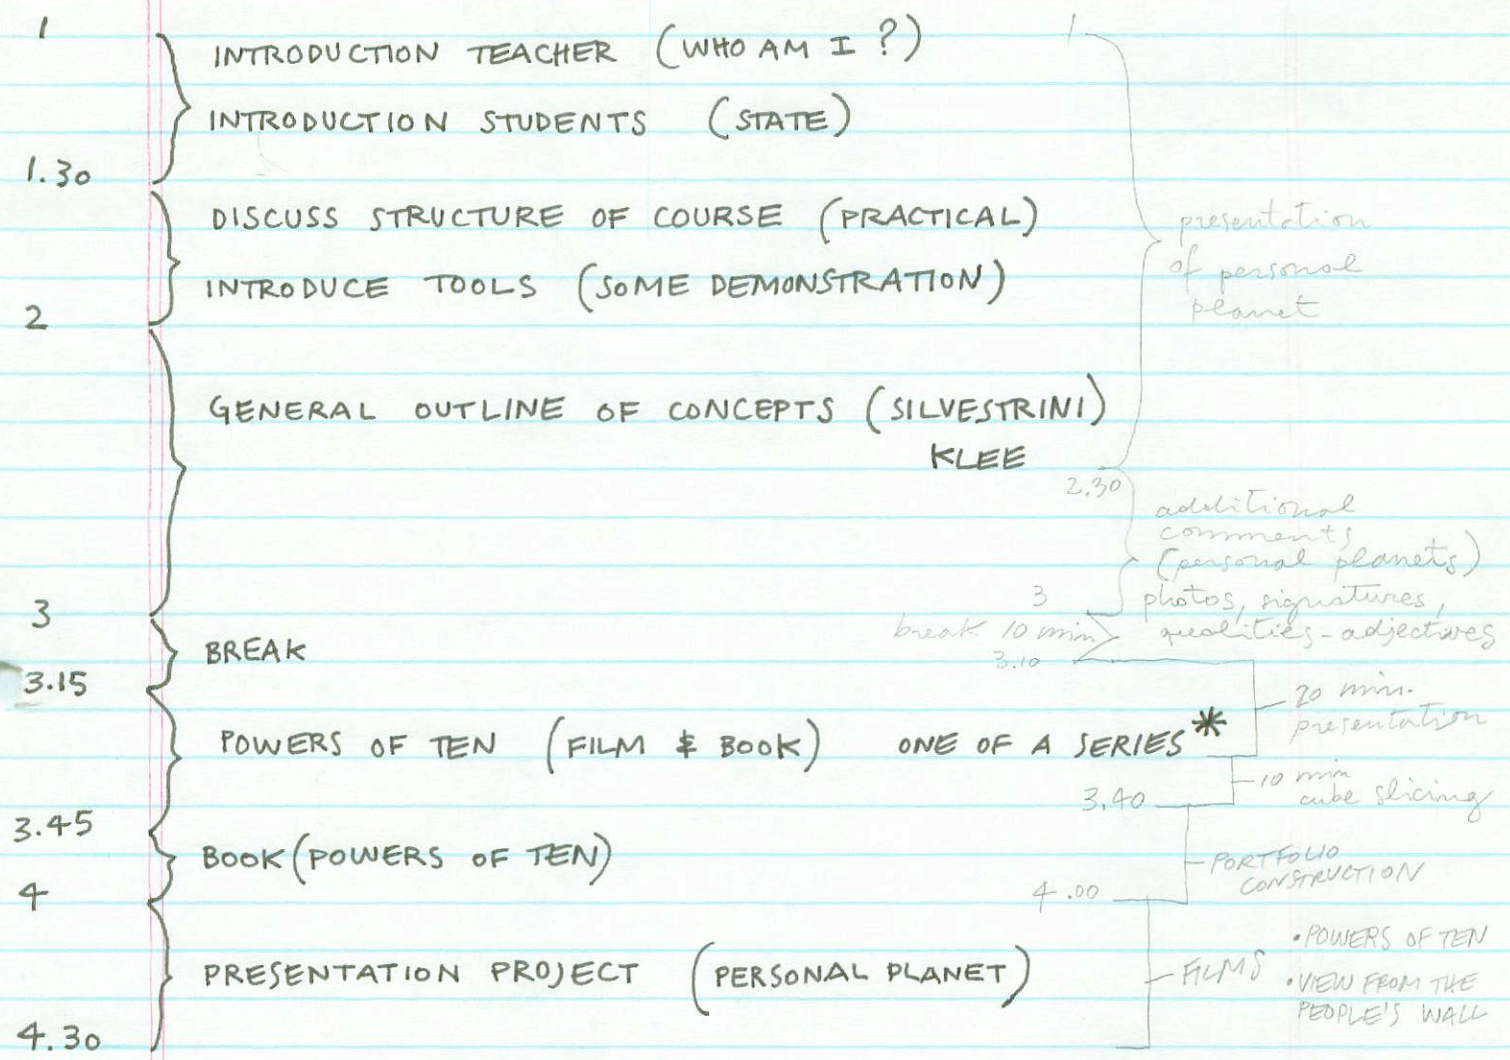 1
INTRODUCTION TEACHER (WHO AM I ?)
INTRODUCTION STUDENTS (STATE)
1.30
DISCUSS STRUCTURE OF COURSE (PRACTICAL)
INTRODUCE TOOLS (SOME DEMONSTRATION)
2
GENERAL OUTLINE OF CONCEPTS (SILVESTRINI)
KLEE
3
BREAK
3.15
POWERS OF TEN (FILM & BOOK) ONE OF A SERIES *
3.45
BOOK (POWERS OF TEN)
4
PRESENTATION PROJECT (PERSONAL PLANET)
4.30
1
presentation
of personal
planet
2.30
additional
comments
(personal planets)
photos, signatures,
qualities-adjectives
3
break 10 min
3.10
20 min.
presentation
10 min
cube slicing
3.40
PORTFOLIO
CONSTRUCTION
4.00
FILMS
• POWERS OF TEN
• VIEW FROM THE
PEOPLE'S WALL